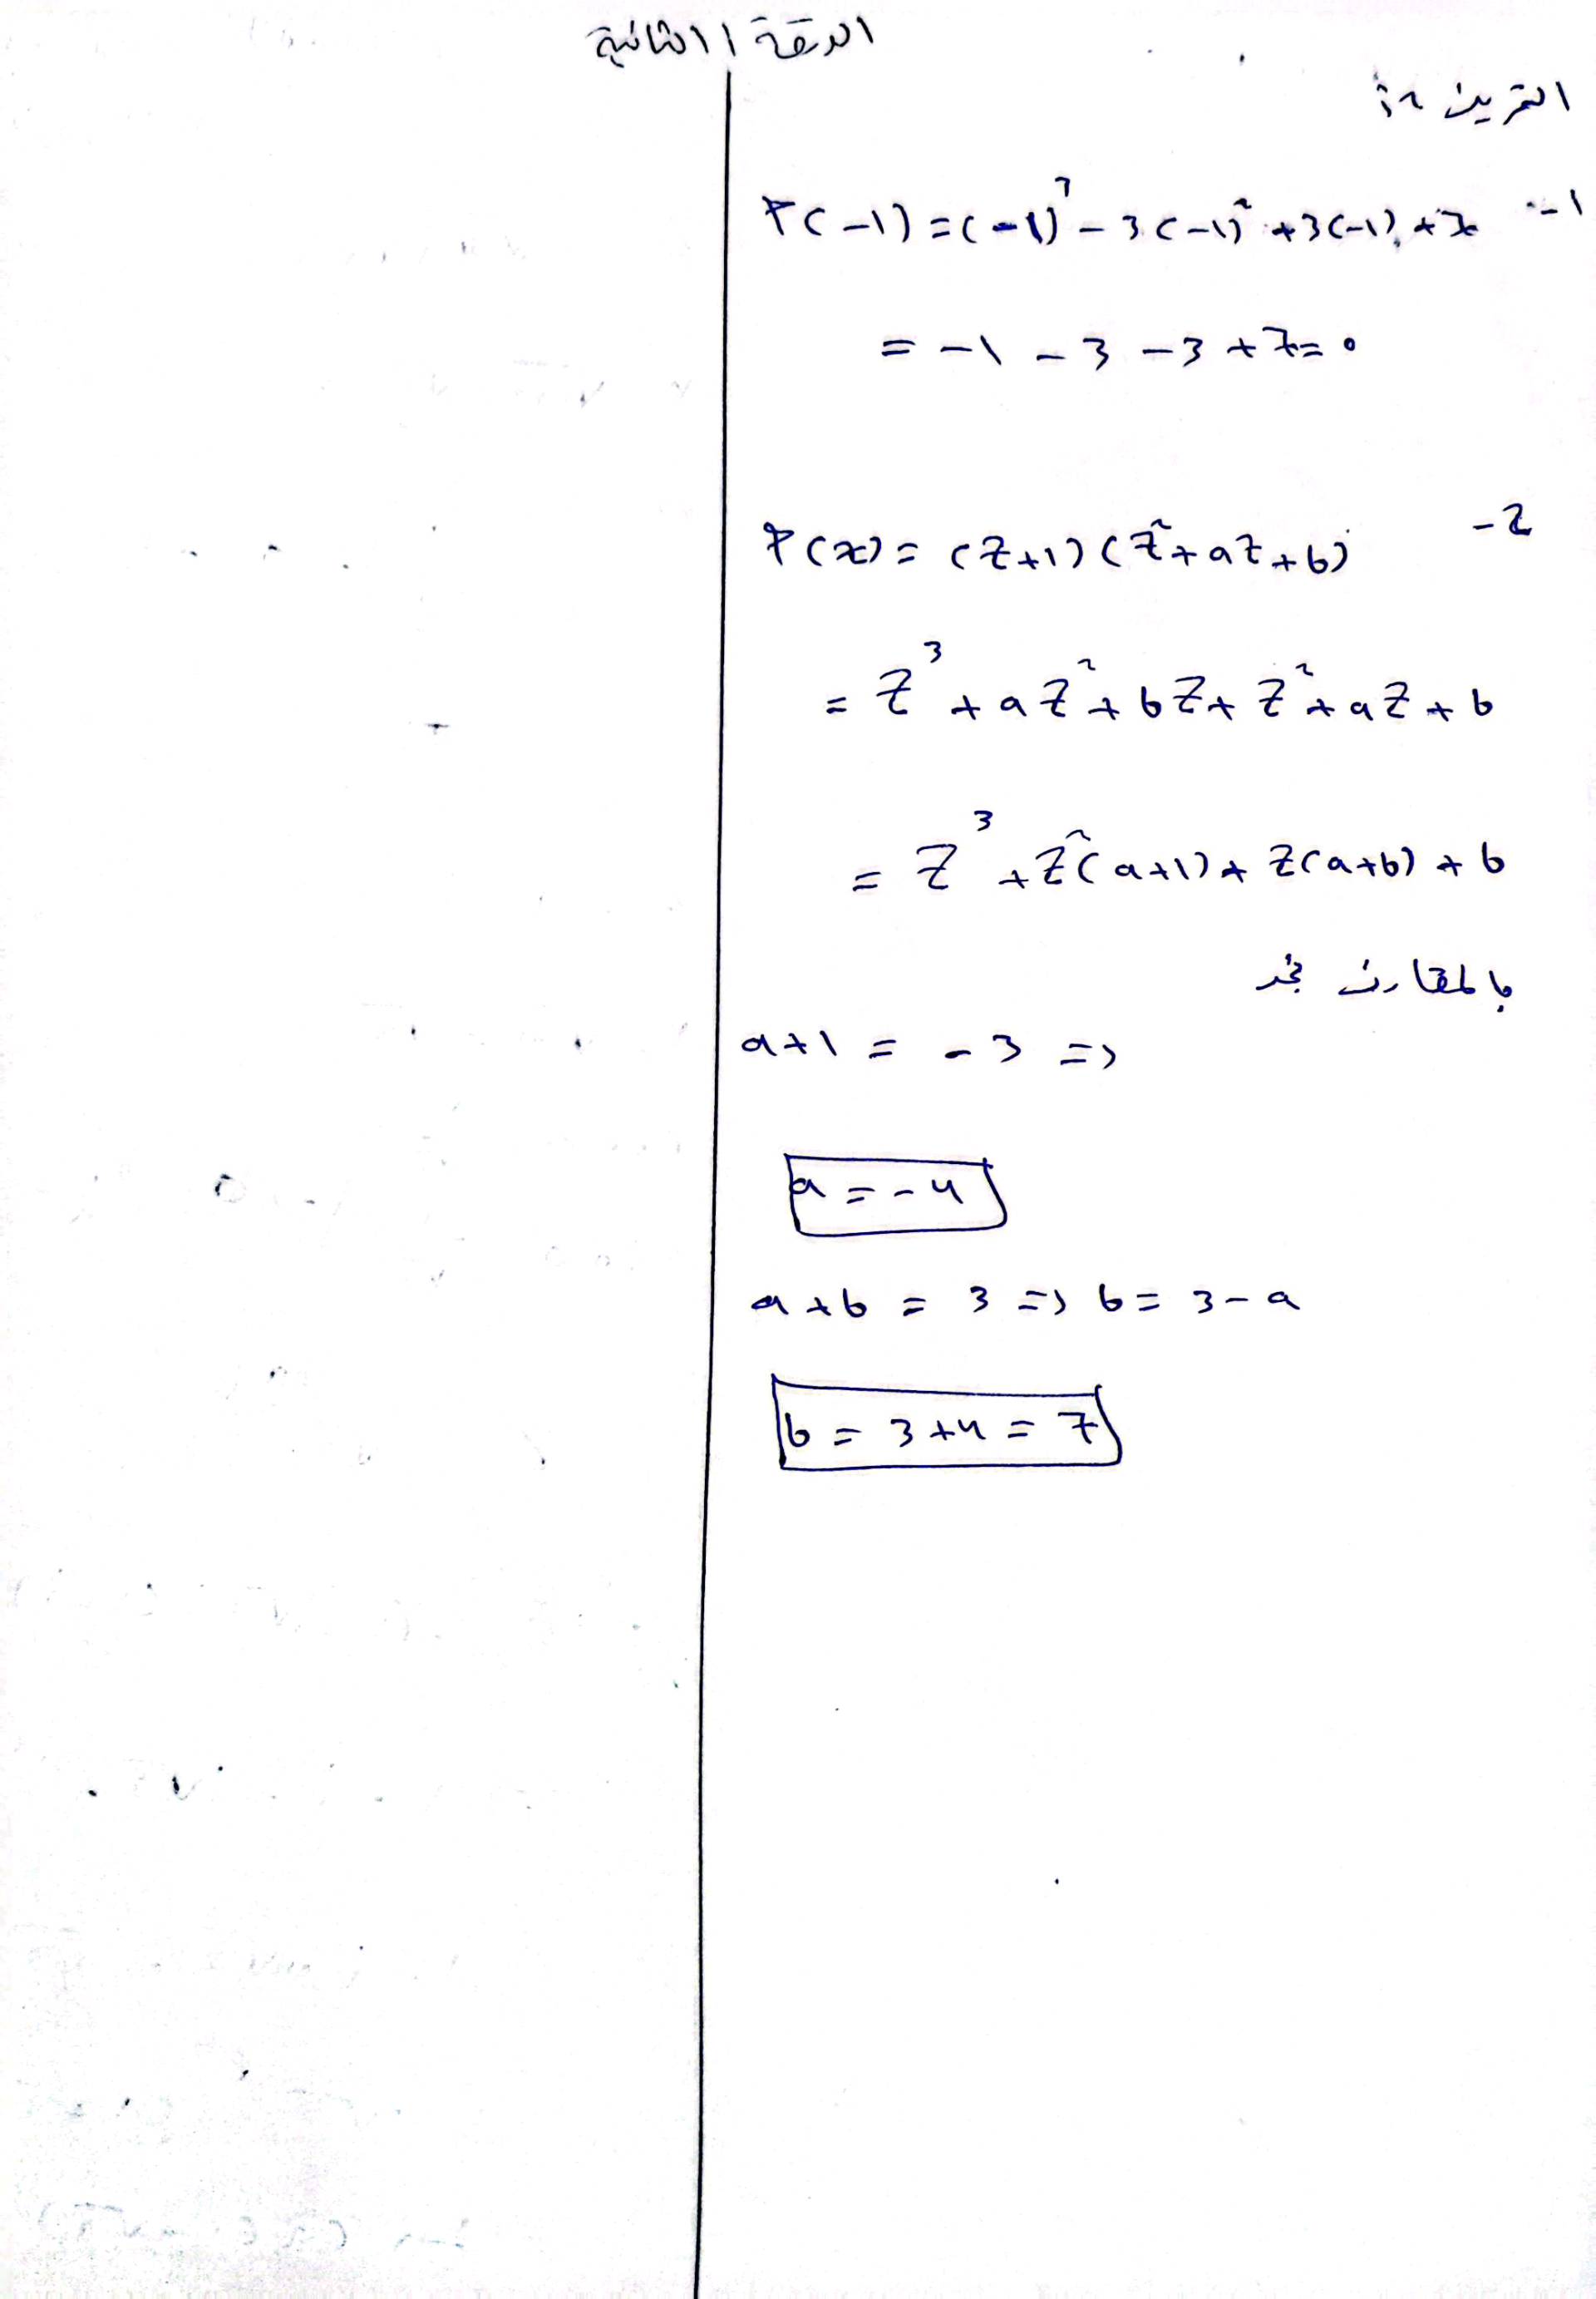 الورقة الثانية
التمرين 2:
1- P(-1) = (-1)³ - 3(-1)² + 3(-1) + 7
= -1 - 3 - 3 + 7 = 0
2- P(z) = (z+1)(z² + az + b)
= z³ + az² + bz + z² + az + b
= z³ + z²(a+1) + z(a+b) + b
بالمقارنة نجد
a+1 = -3 =>
a = -4
a+b = 3 => b = 3-a
b = 3+4 = 7